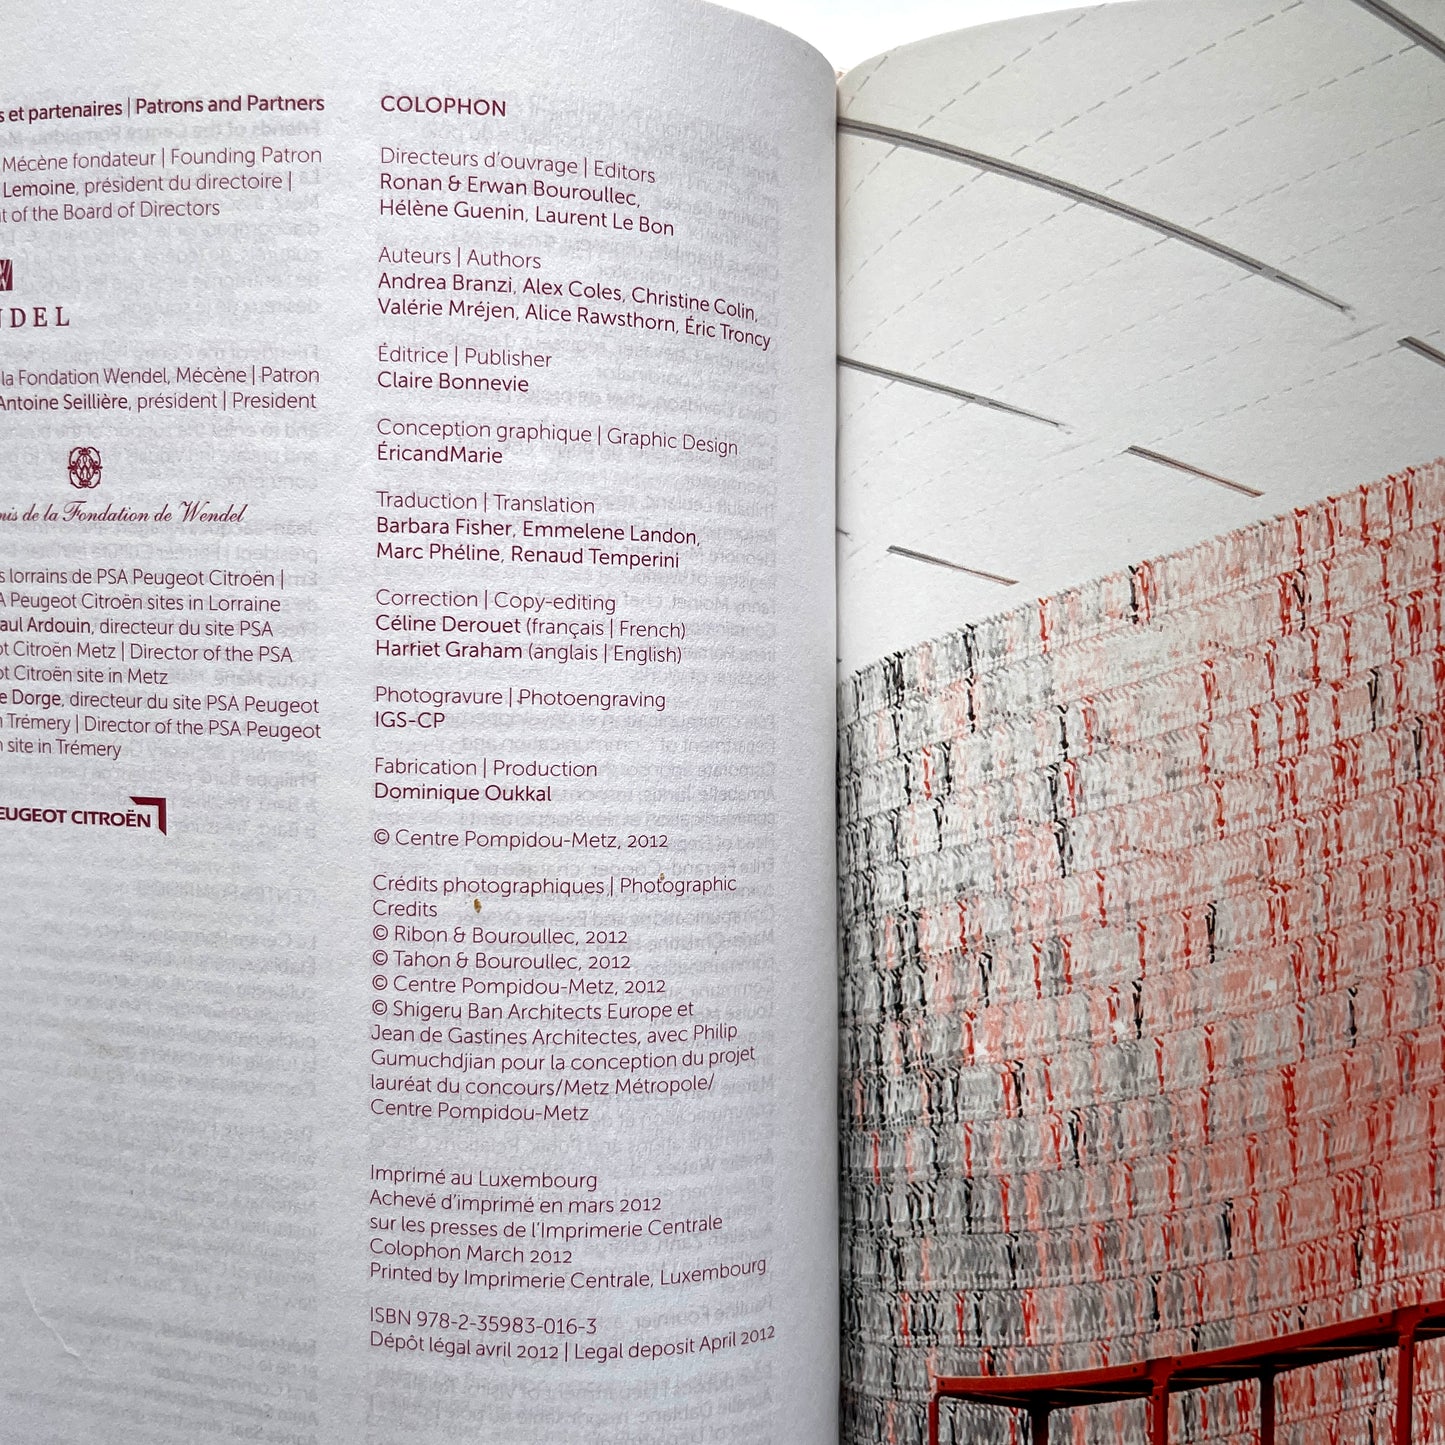 et partenaires | Patrons and Partners
Mécène fondateur | Founding Patron
Lemoine, président du directoire |
of the Board of Directors
la Fondation Wendel, Mécène | Patron
Antoine Seillière, président | President
de la Fondation de Wendel
lorrains de PSA Peugeot Citroën |
Peugeot Citroën sites in Lorraine
Ardouin, directeur du site PSA
Citroën Metz | Director of the PSA
Citroën site in Metz
Dorge, directeur du site PSA Peugeot
Trémery | Director of the PSA Peugeot
site in Trémery
CITROËN
COLOPHON
Directeurs d'ouvrage | Editors
Ronan & Erwan Bouroullec,
Hélène Guenin, Laurent Le Bon
Auteurs | Authors
Andrea Branzi, Alex Coles, Christine Colin,
Valérie Mréjen, Alice Rawsthorn, Éric Troncy
Éditrice | Publisher
Claire Bonnevie
Conception graphique | Graphic Design
ÉricandMarie
Traduction | Translation
Barbara Fisher, Emmelene Landon,
Marc Phéline, Renaud Temperini
Correction | Copy-editing
Céline Derouet (français | French)
Harriet Graham (anglais | English)
Photogravure | Photoengraving
IGS-CP
Fabrication | Production
Dominique Oukkal
© Centre Pompidou-Metz, 2012
Crédits photographiques | Photographic
Credits
© Ribon & Bouroullec, 2012
© Tahon & Bouroullec, 2012
© Centre Pompidou-Metz, 2012
© Shigeru Ban Architects Europe et
Jean de Gastines Architectes, avec Philip
Gumuchdjian pour la conception du projet
lauréat du concours/Metz Métropole/
Centre Pompidou-Metz
Imprimé au Luxembourg
Achevé d'imprimé en mars 2012
sur les presses de l'Imprimerie Centrale
Colophon March 2012
Printed by Imprimerie Centrale, Luxembourg
ISBN 978-2-35983-016-3
Dépôt légal avril 2012 | Legal deposit April 2012